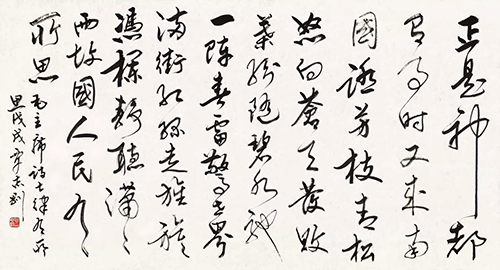 正是神都
有事时又来南
國踏芳枝青松
怒向蒼天發敗
葉紛隨碧水馳
一陣春雷驚世界
滿街紅綠走旌旗
憑欄靜聽瀟〻
雨故國人民有
所思
毛主席詩七律有所
思戊戌